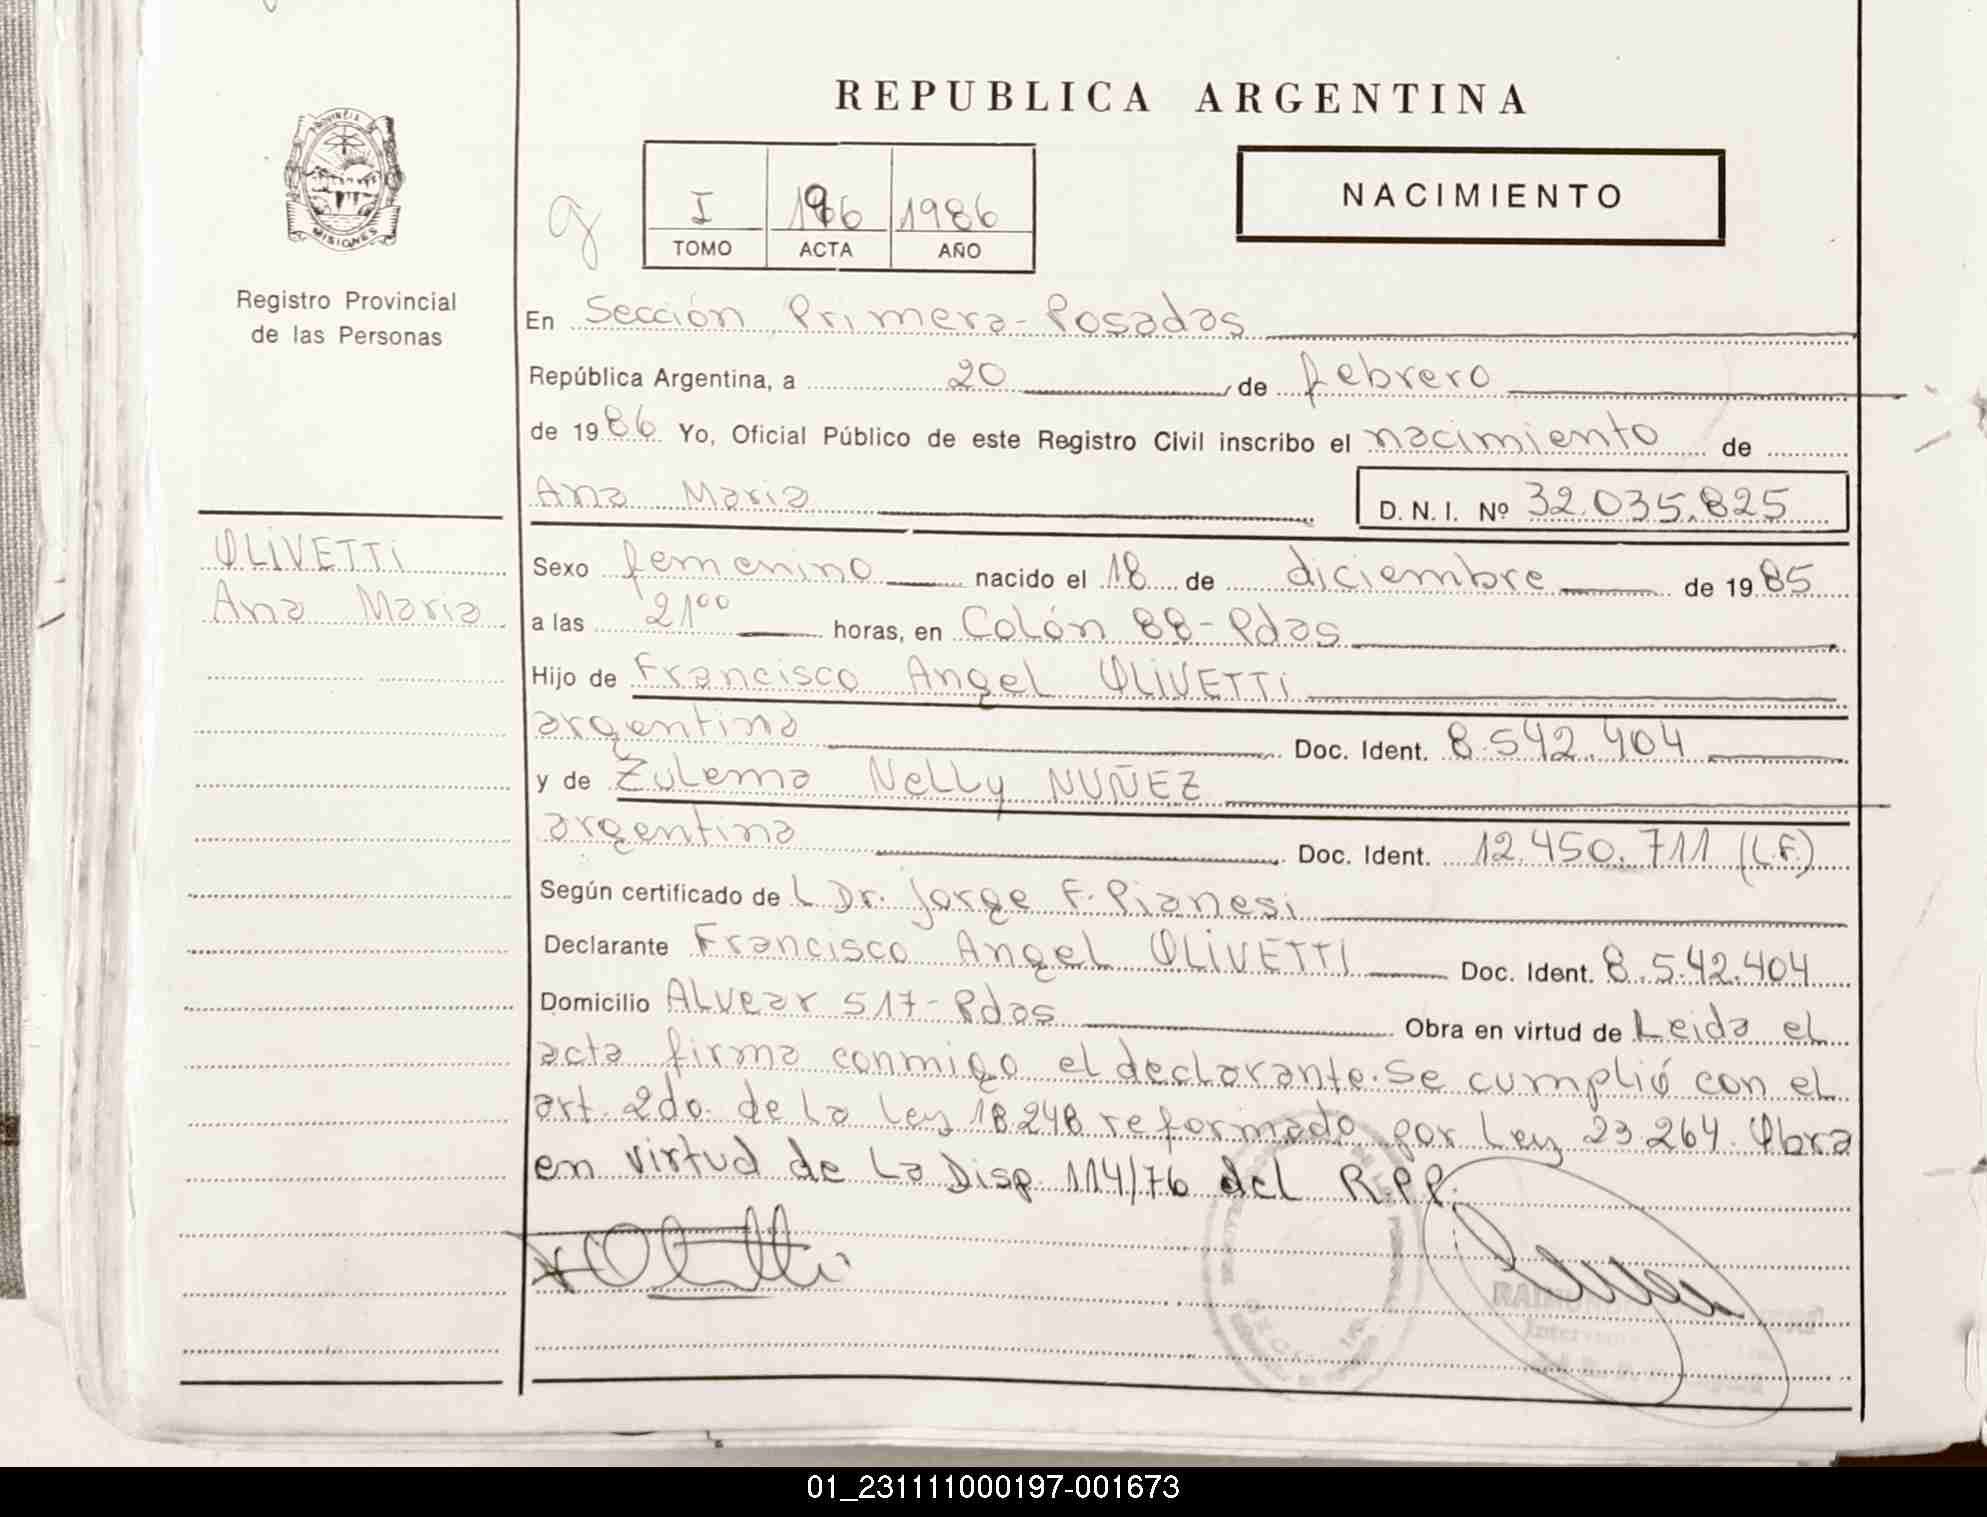 REPUBLICA ARGENTINA
PROVINCIA DE
MISIONES
NACIMIENTO
I 1986
TOMO ACTA AÑO
Registro Provincial
de las Personas
En Sección Primera - Posadas
República Argentina, a 20 de febrero
de 1986 Yo, Oficial Público de este Registro Civil inscribo el nacimiento de
Ana Maria D. N. I. Nº 32.035.825
OLIVETTI
Ana Maria
Sexo femenino nacido el 18 de diciembre de 1985
a las 21⁰⁰ horas, en Colón 88 - Pdas
Hijo de Francisco Angel OLIVETTI
argentina Doc. Ident. 8.542.404
y de Zulema Nelly NUÑEZ
argentina Doc. Ident. 12.450.711 (L.F.)
Según certificado de L Dr. Jorge F. Pianesi
Declarante Francisco Angel OLIVETTI Doc. Ident. 8.542.404
Domicilio Alvear 517 - Pdas Obra en virtud de Leida el
acta firma conmigo el declarante. Se cumplió con el
art. 2do. de la Ley 18.248 reformado por Ley 23.264. Obra
en virtud de La Disp. 114/76 del R.P.P.
01_231111000197-001673